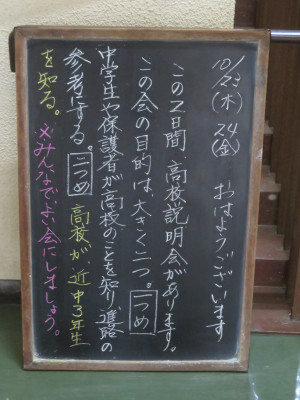 10/23(木) 24(金) おはようございます
この2日間、高校説明会があります。
この会の目的は、大きく二つ。一つめ
中学生や保護者が高校のことを知り、進路の
参考にする。二つめ 高校が、近中3年生
を知る。※みんなでよい会にしましょう。